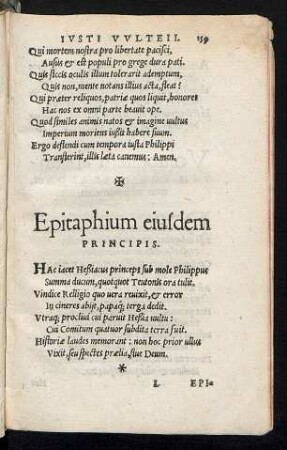 IVSTI VVLTEII. 159
Qui mortem nostra pro libertate pacisci,
Ausus & est populi pro grege dura pati.
Quis siccis oculis illum tolerarit ademptum,
Quis non, mente notans illius acta, fleat?
Qui præter reliquos, patriæ quos liquit, honores
Hac nos ex omni parte beauit ope.
Quod similes animis natos & imagine uultus
Imperium moriens iussit habere suum.
Ergo deflendi cum tempora iusta Philippi
Transierint, illis læta cauemus: Amen.
✠
Epitaphium eiusdem
PRINCIPIS.
HAc iacet Hessiacus princeps sub mole Philippus
Summa ducum, quotquot Teutonis ora tulit.
Vindice Relligio quo uera reuixit, & error
In cineres abijt, papaq́; terga dedit.
Vtraq́; procliui cui paruit Hessia uultu:
Cui Comitum quatuor subdita terra fuit.
Historiæ laudes memorant: non hoc prior ullus
Vixit, seu spectes prælia, siue Deum.
*
L EPI-